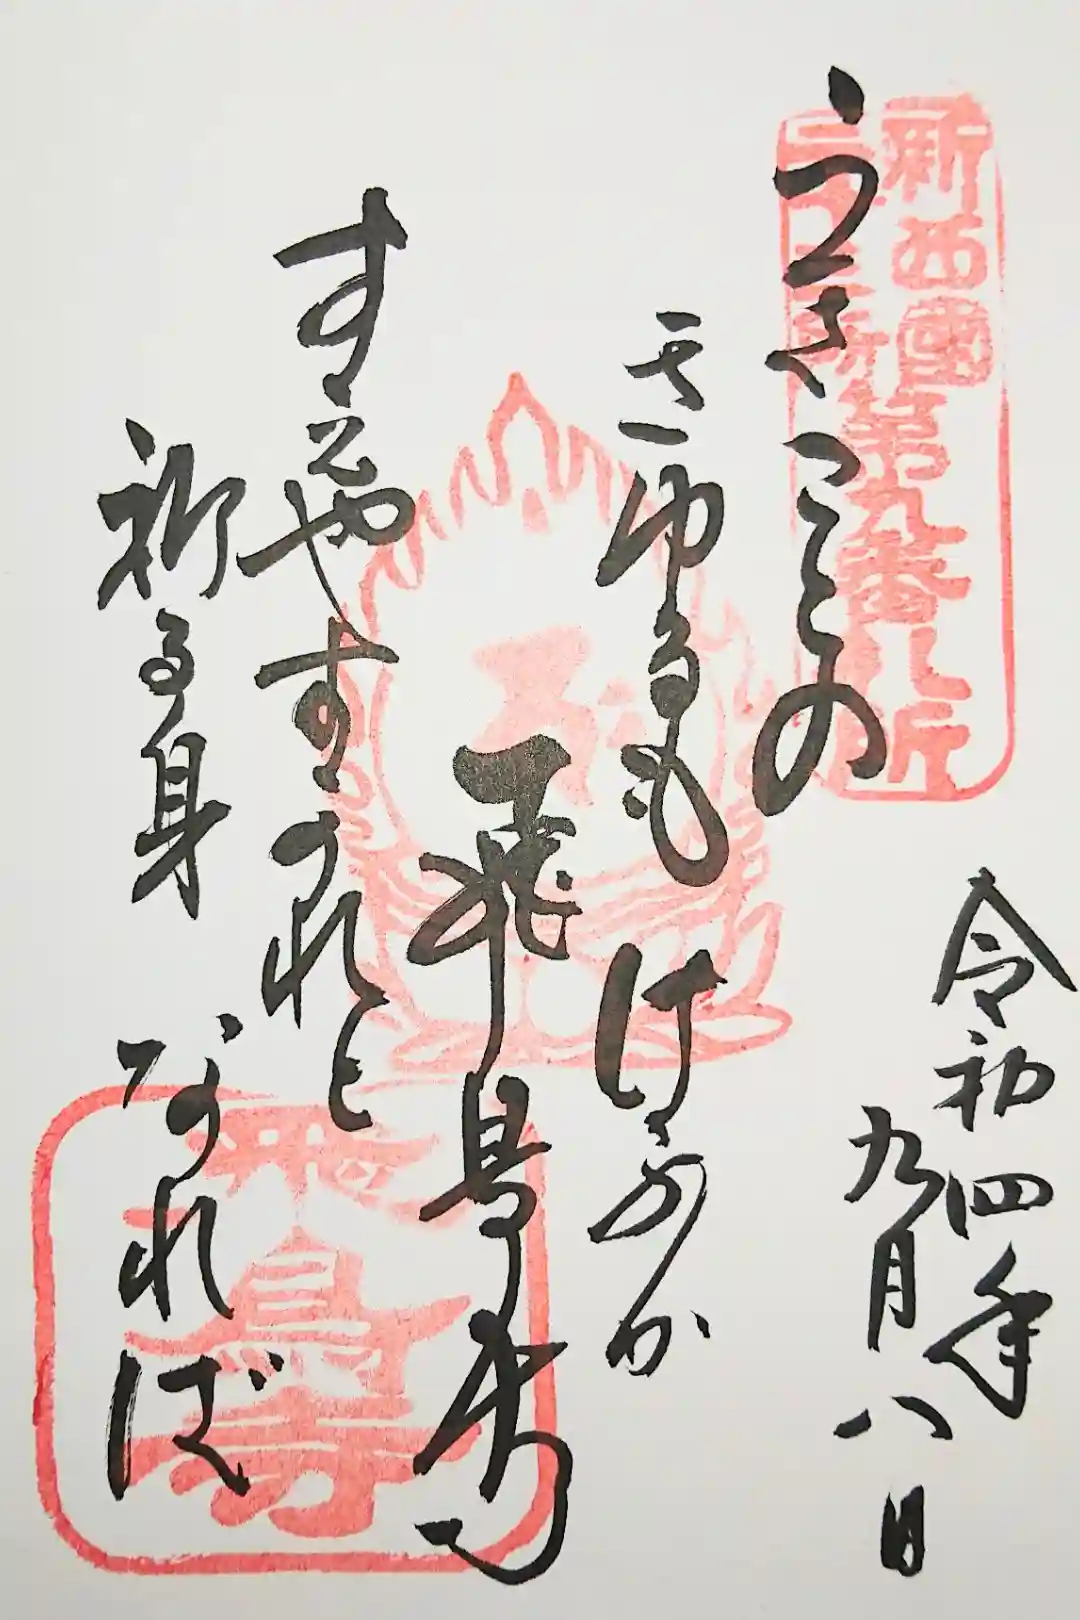 新西國三十三所第九番札所
うきことの
令和四年
九月八日
きゆるも けふか
飛鳥寺
すゑやすかれと
祈る身 なれば
飛鳥寺